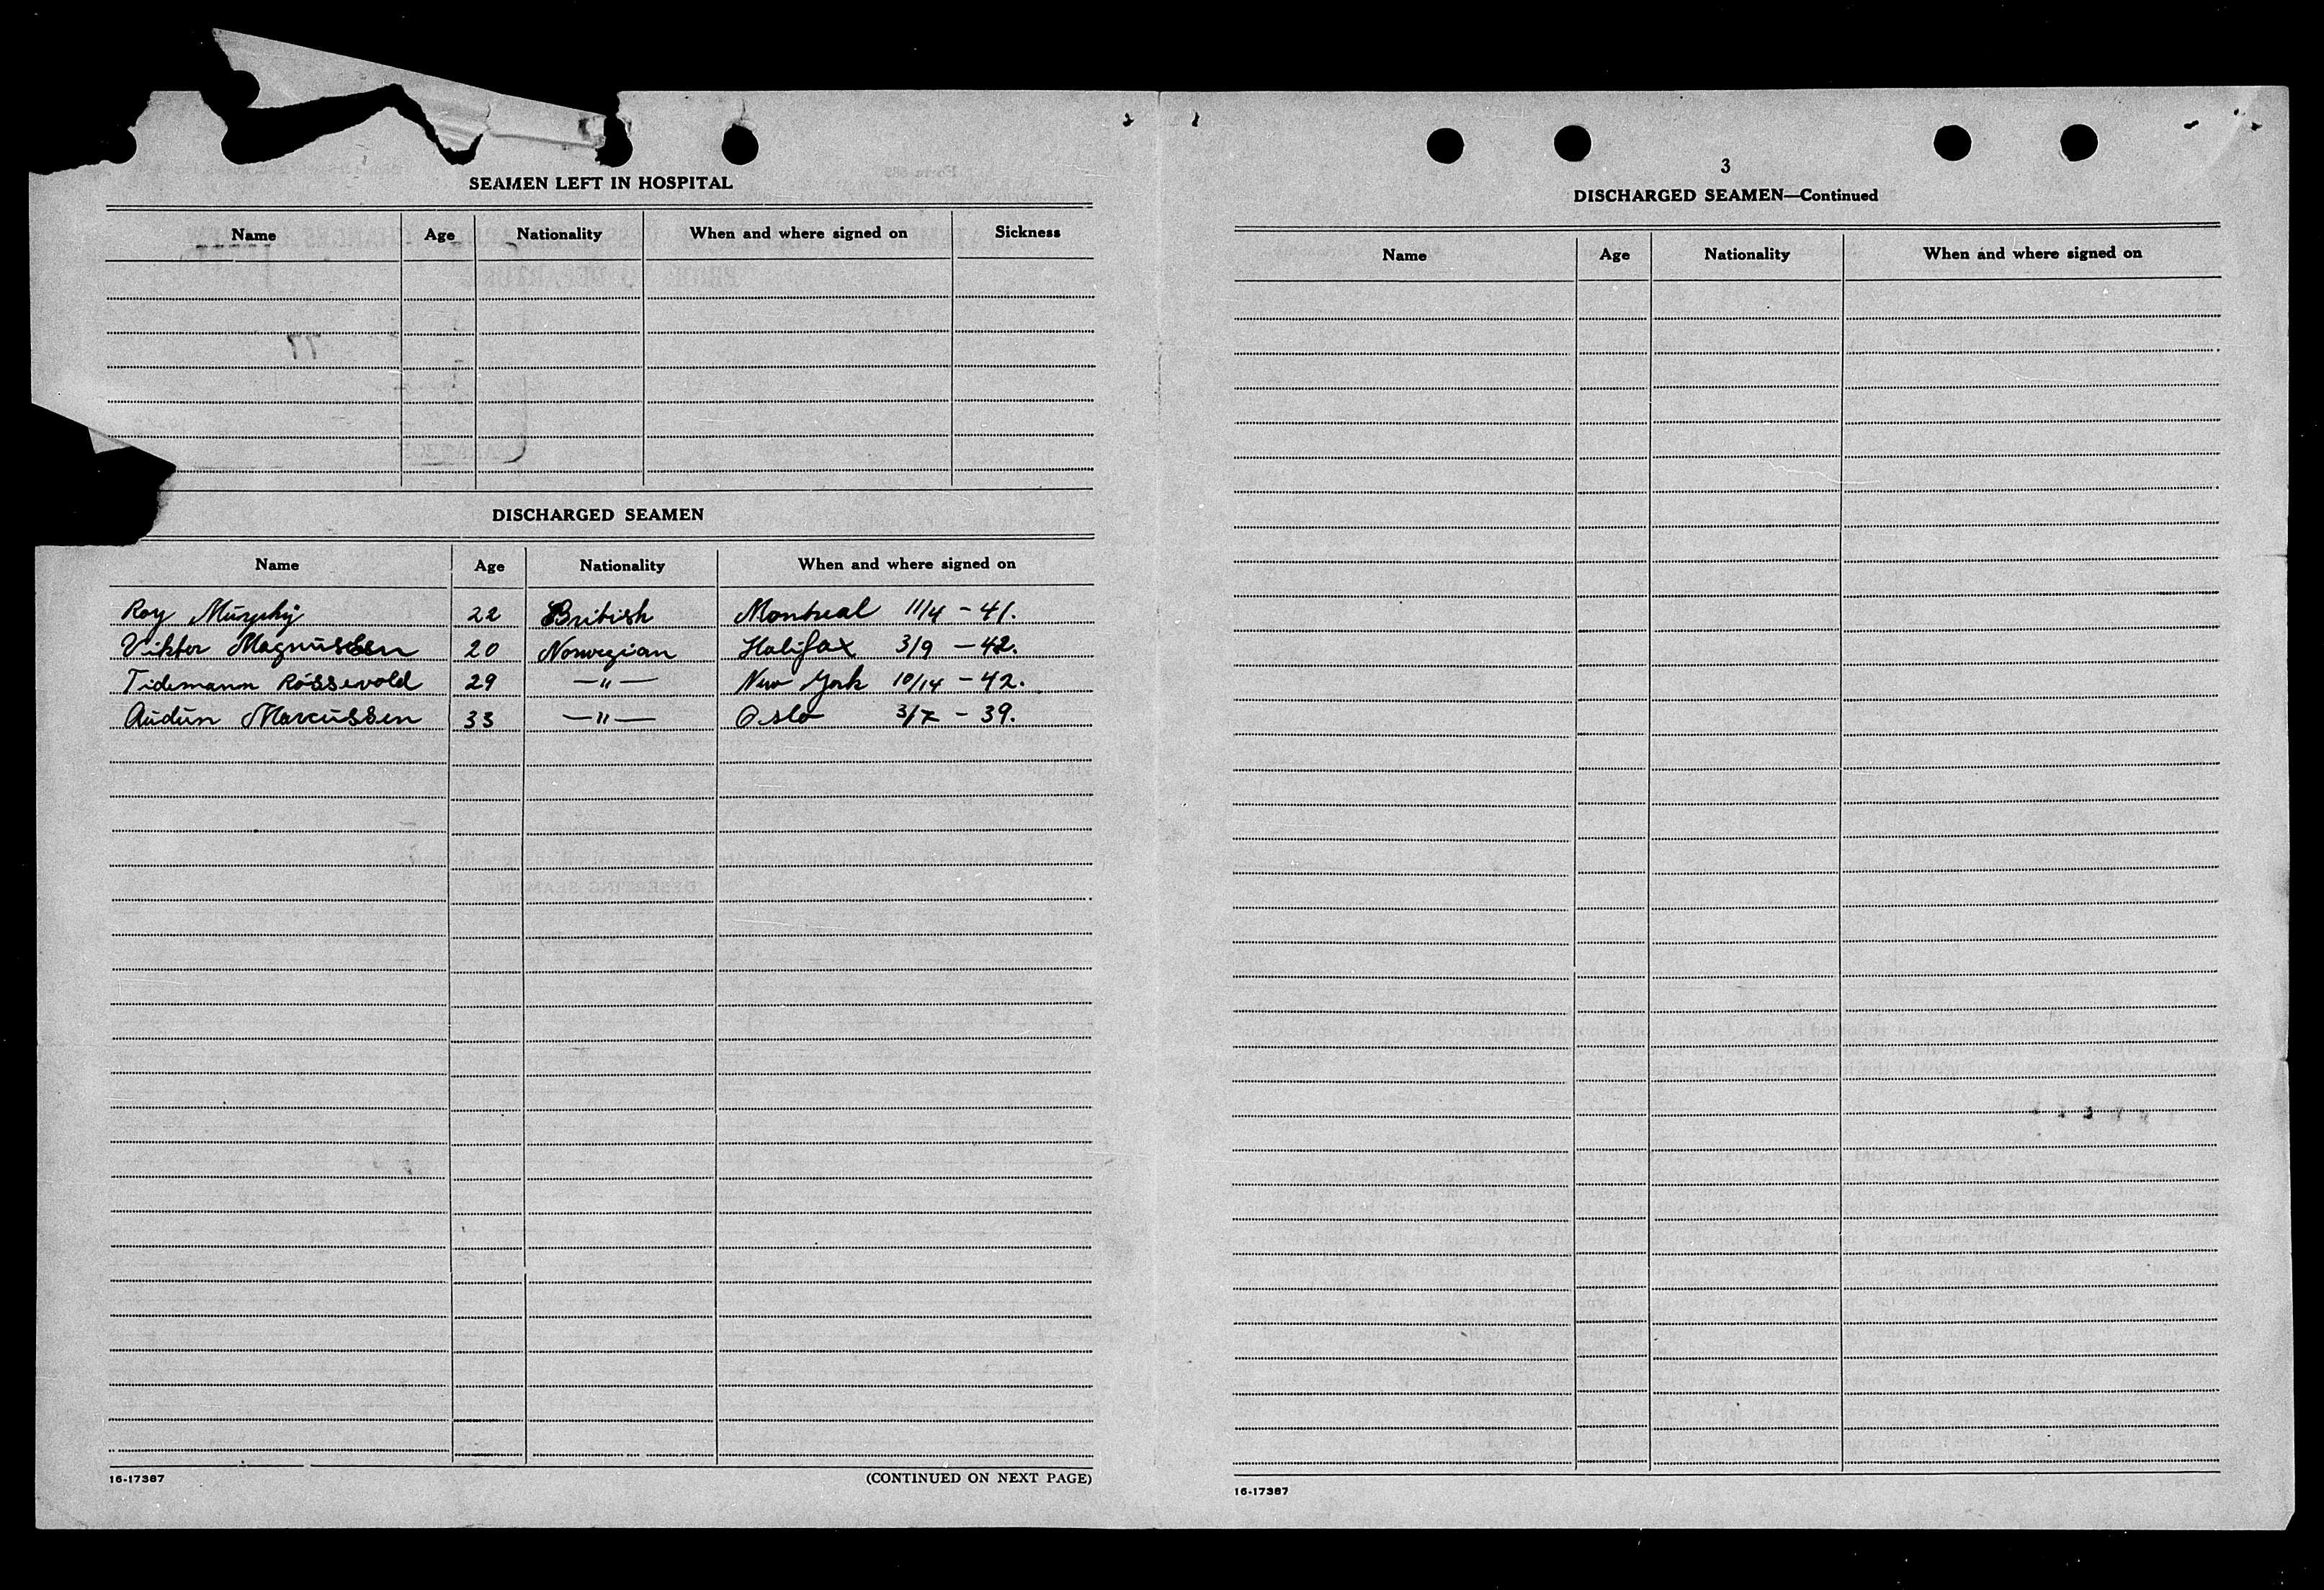 SEAMEN LEFT IN HOSPITAL
Name Age Nationality When and where signed on Sickness
DISCHARGED SEAMEN
Name Age Nationality When and where signed on
Roy Murphy 22 British Montreal 11/4 - 41.
Viktor Magnussen 20 Norwegian Halifax 3/9 - 42.
Tidemann Rössevold 29 —"— New York 10/14 - 42.
Audun Marcussen 33 —"— Oslo 3/7 - 39.
16-17387 (CONTINUED ON NEXT PAGE)
3
DISCHARGED SEAMEN—Continued
Name Age Nationality When and where signed on
16-17387